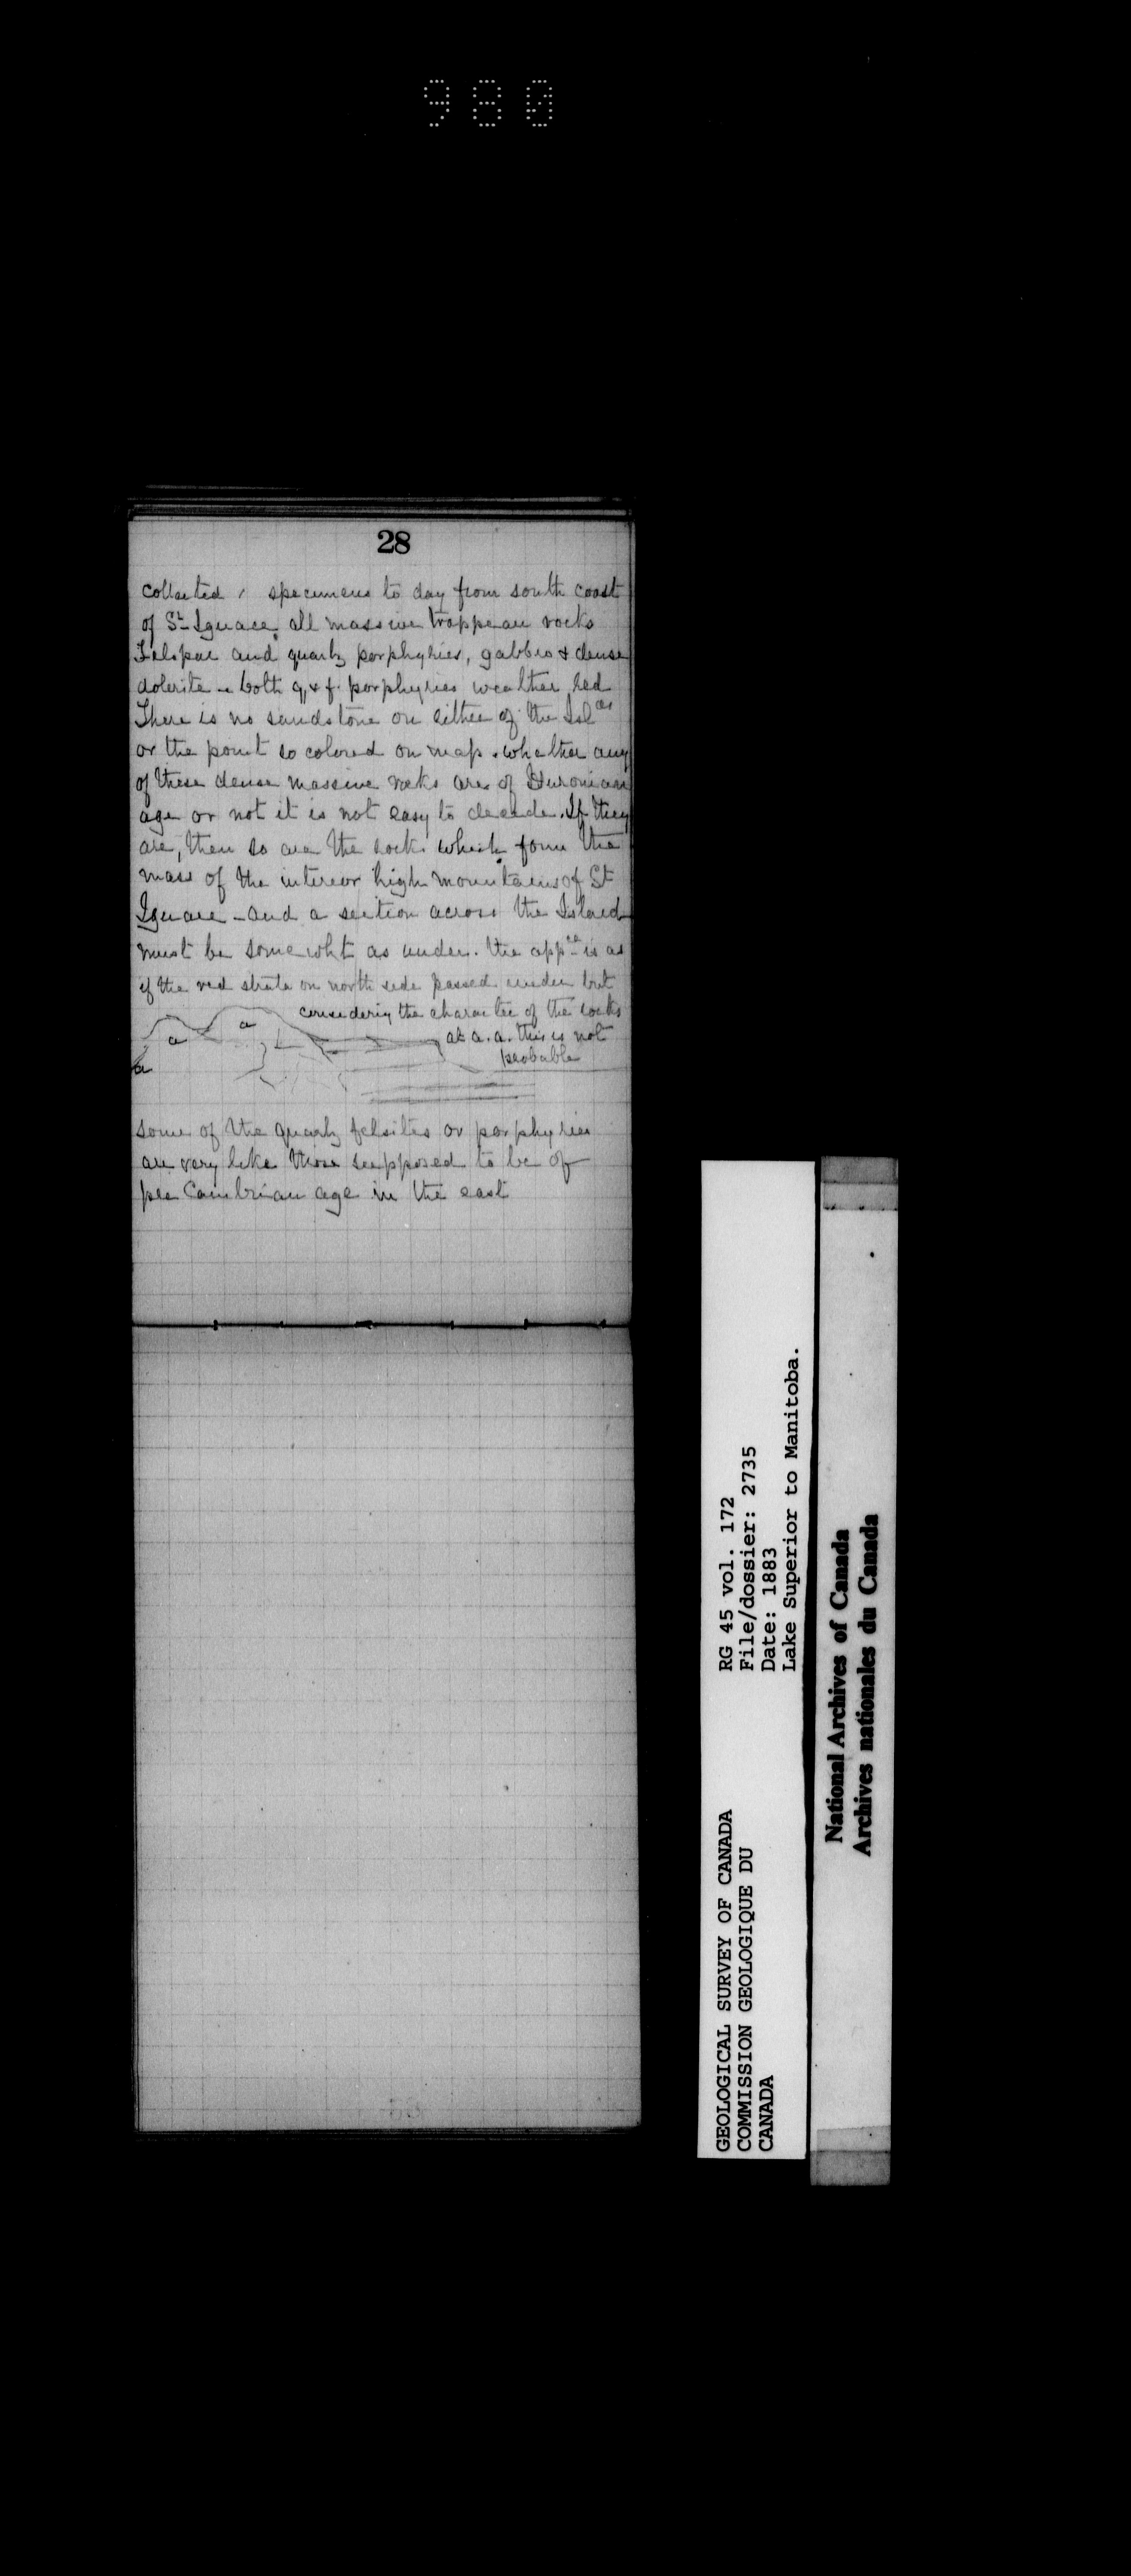 980
28
collected , specimens to day from south coast
of St Ignace. all massive trappean rocks
Felspar and quartz porphyries, gabbro & dense
dolerite - both q & f. porphyries weather red
There is no sandstone on either of the Isl
or the point so colored on map. whether any
of these dense massive rocks are of Huronian
age or not it is not easy to decide. If they
are, then so are the rocks which form the
mass of the interior high mountains of St
Ignace - and a section across the Island
must be somewht as under. the appce is as
if the red strata on north side passed under but
considering the character of the rocks
at a.a. this is not
probable
a
a
a
some of the quartz felsites or porphyries
are very like those supposed to be of
pre Cambrian age in the east
GEOLOGICAL SURVEY OF CANADA
COMMISSION GEOLOGIQUE DU
CANADA
RG 45 vol. 172
File/dossier: 2735
Date: 1883
Lake Superior to Manitoba.
National Archives of Canada
Archives nationales du Canada